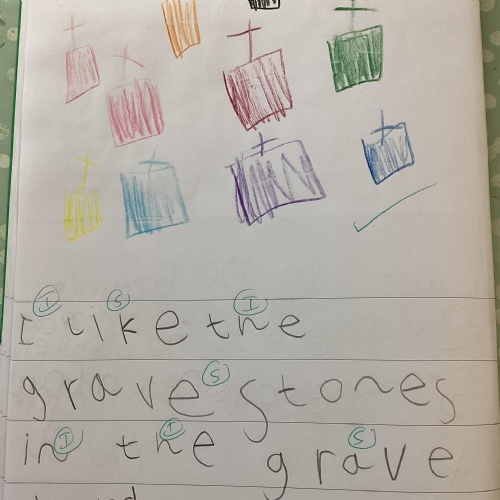 I like the
grave stones
in the grave